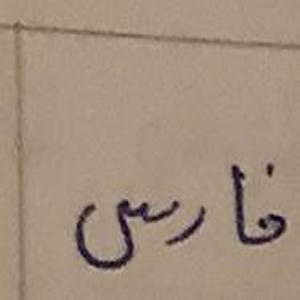 فارس